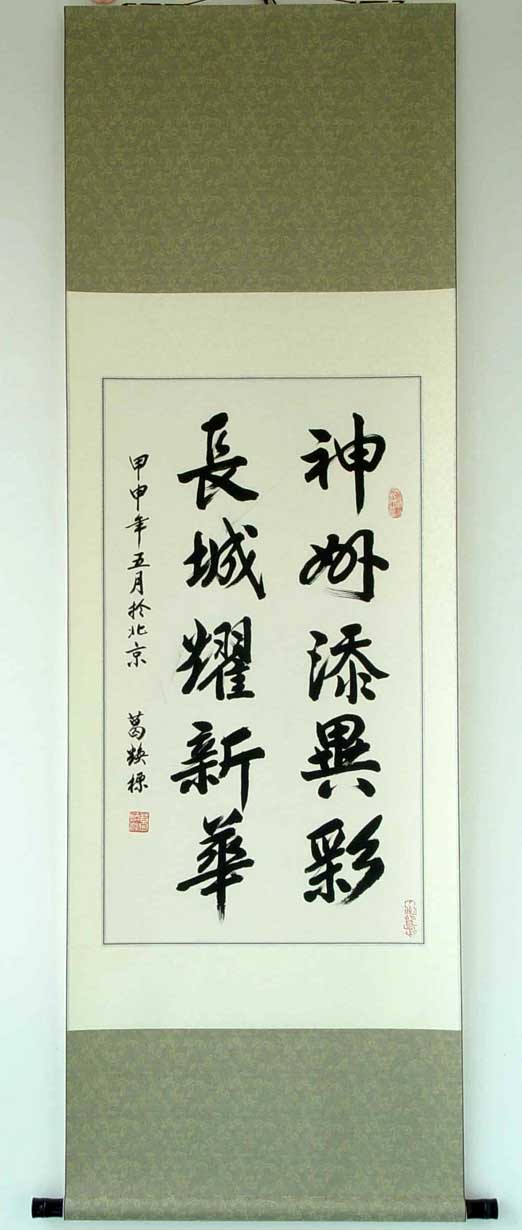 神州添異彩
長城耀新華
甲申年五月於北京 葛焕標